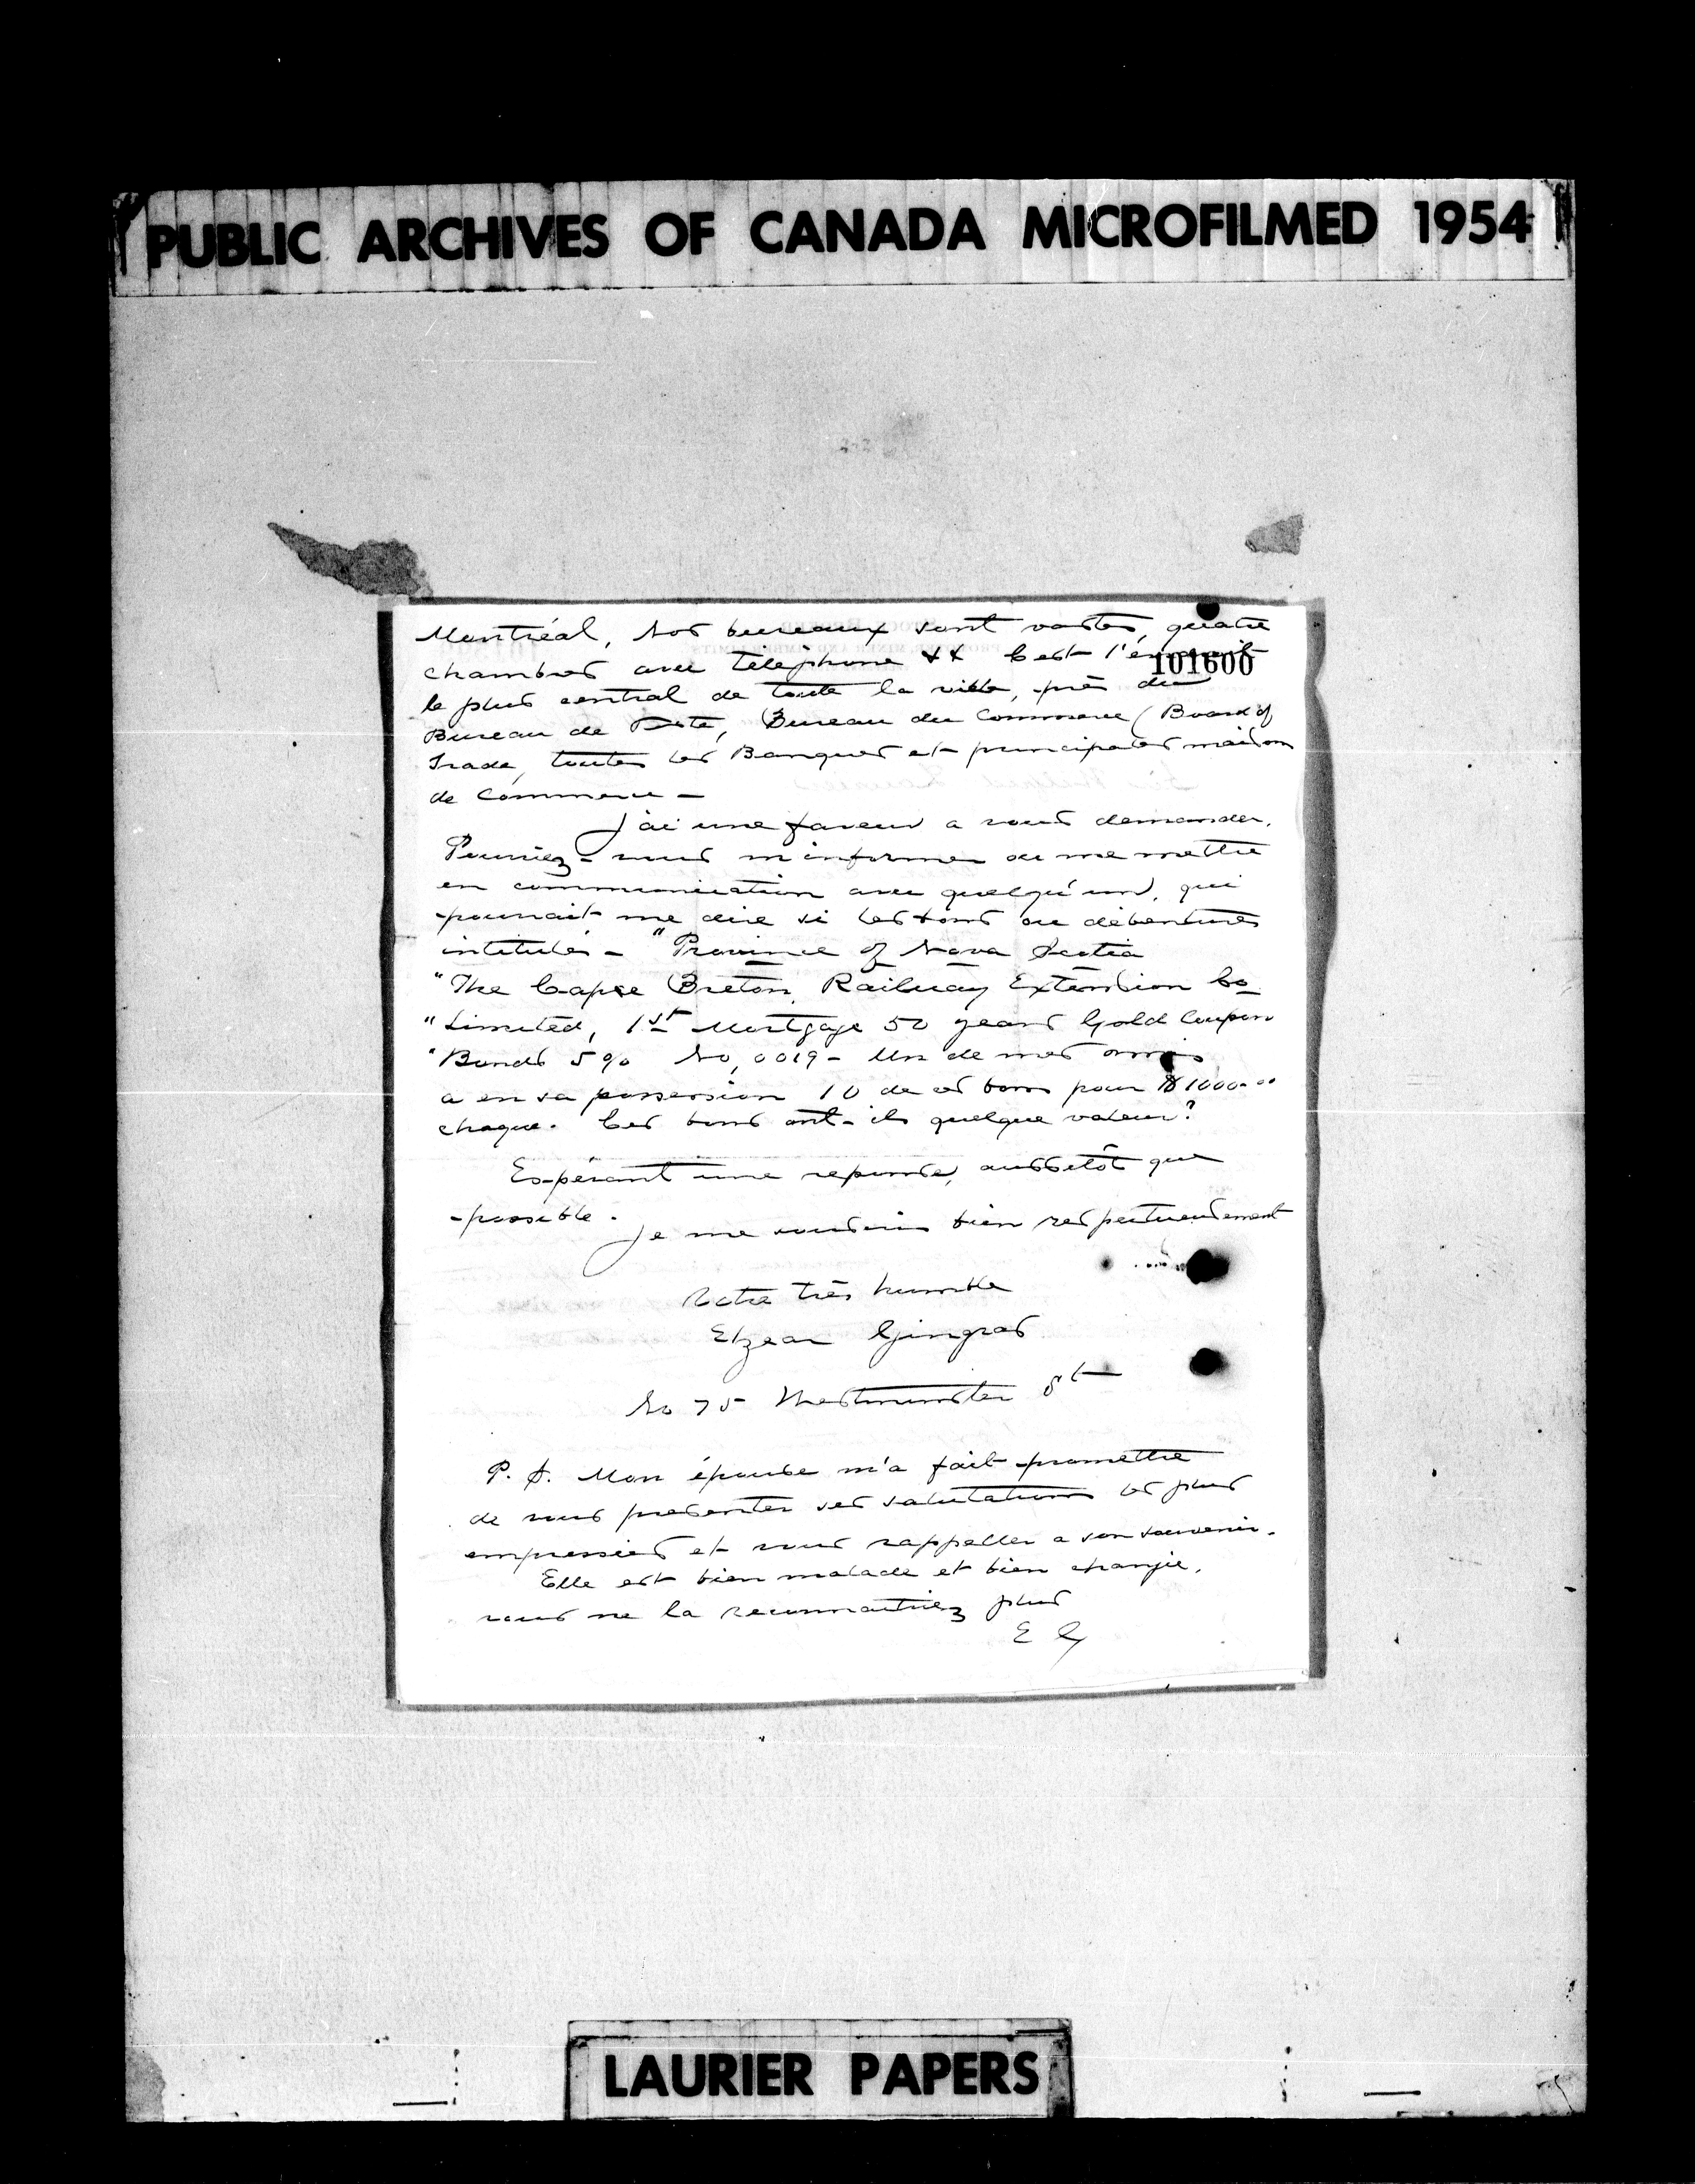 PUBLIC ARCHIVES OF CANADA MICROFILMED 1954
Montréal, Nos bureaux sont vastes, quatre
101600
chambres avec téléphone && C'est l'endroit
le plus central de toute la ville, près du
Bureau de Poste, Bureau du Commerce (Board of
Trade, toutes les Banques et principales maisons
de Commerce -
J'ai une faveur a vous demander.
Pourriez-vous m'informer ou me mettre
en communication avec quelqu'un, qui
pourrait me dire si les bons ou débentures
intitulés - "Province of Nova Scotia
"The Cape Breton Railway Extension Co
"Limited, 1st Mortgage 50 years Gold Coupon
"Bonds 5% No, 0019 - Un de mes amis
a en sa possession 10 de ces bons pour $1000.00
chaque. Ces bons ont-ils quelque valeur?
Espérant une reponse, aussitôt que
possible.
Je me souscris bien respectueusement
Votre très humble
Elzear Gingras
No 75 Westminster St
P. S. Mon épouse m'a fait promettre
de vous presenter ses salutations les plus
empressées et vous rappeller a son souvenir.
Elle est bien malade et bien changée,
vous ne la reconnaitriez plus
E G
LAURIER PAPERS